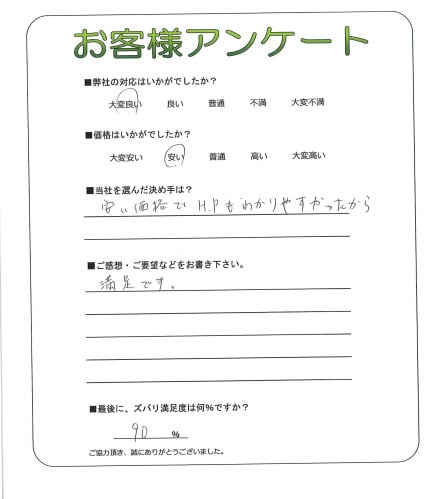 お客様アンケート
■弊社の対応はいかがでしたか？
大変良い 良い 普通 不満 大変不満
■価格はいかがでしたか？
大変安い 安い 普通 高い 大変高い
■当社を選んだ決め手は？
安い価格で H.Pもわかりやすかったから
■ご感想・ご要望などをお書き下さい。
満足です。
■最後に、ズバリ満足度は何％ですか？
90 ％
ご協力頂き、誠にありがとうございました。